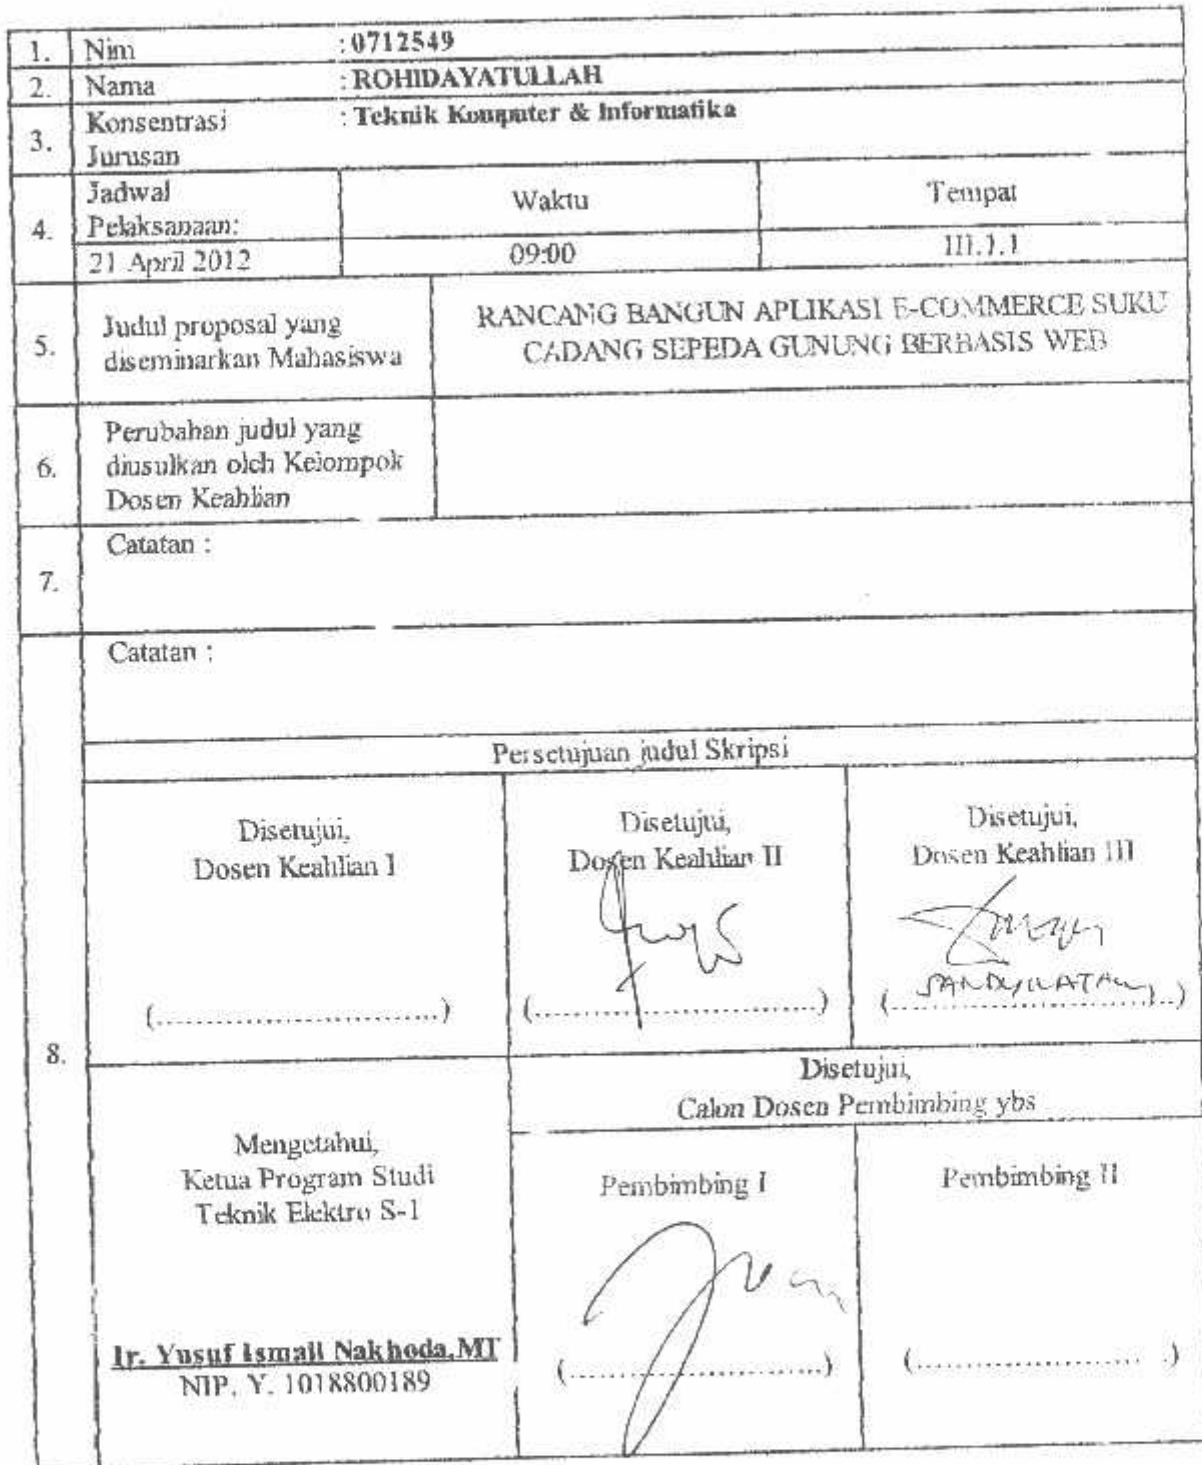 1. Nim : 0712549
2. Nama : ROHIDAYATULLAH
3. Konsentrasi Jurusan : Teknik Komputer & Informatika
4. Jadwal Pelaksanaan: Waktu Tempat
21 April 2012 09:00 III.1.1
5. Judul proposal yang
diseminarkan Mahasiswa
RANCANG BANGUN APLIKASI E-COMMERCE SUKU
CADANG SEPEDA GUNUNG BERBASIS WEB
6. Perubahan judul yang
diusulkan oleh Kelompok
Dosen Keahlian
7. Catatan :
8. Catatan :
Persetujuan judul Skripsi
Disetujui,
Dosen Keahlian I
(..............................)
Disetujui,
Dosen Keahlian II
(..............................)
Disetujui,
Dosen Keahlian III
(..............................)
Mengetahui,
Ketua Program Studi
Teknik Elektro S-1
Ir. Yusuf Ismail Nakhoda,MT
NIP. Y. 1018800189
Disetujui,
Calon Dosen Pembimbing ybs
Pembimbing I
(..............................)
Pembimbing II
(..............................)